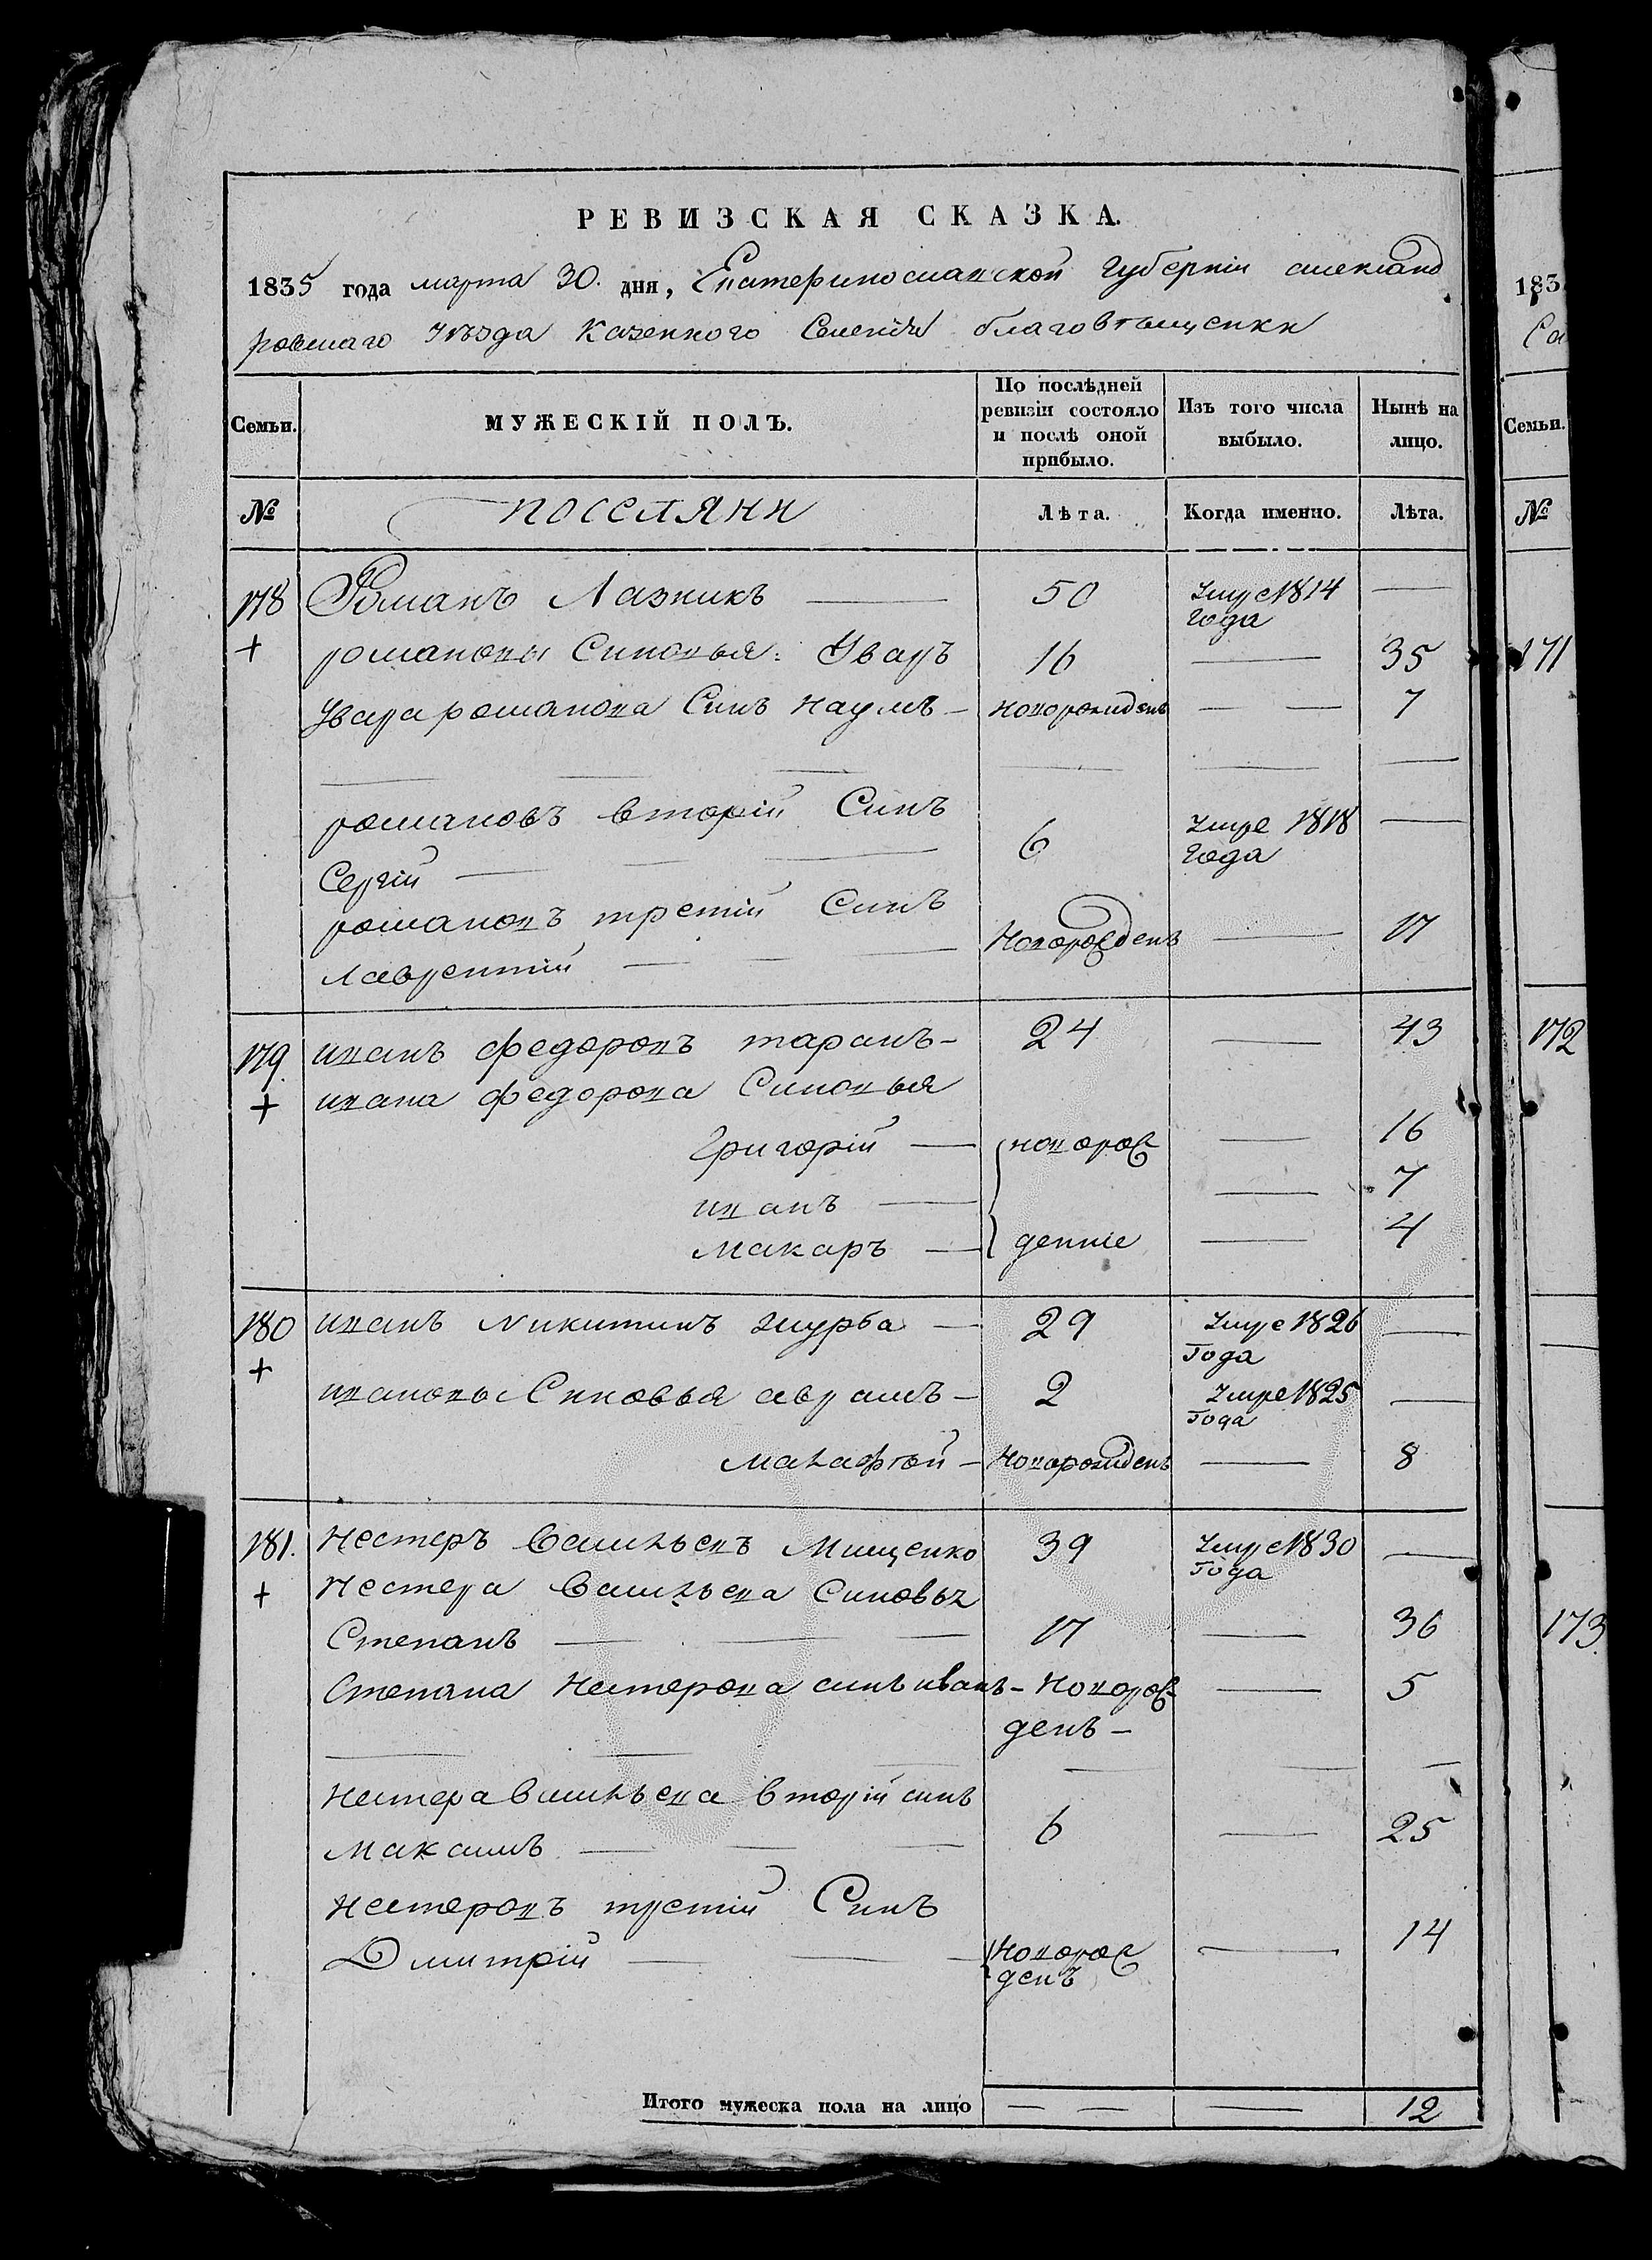 РЕВИЗСКАЯ СКАЗКА.
1835 года марта 30. дня, Екатеринославской губернии александ
ровскаго уѣзда казенного Селенія благовѣщенки
Семьи. МУЖЕСКІЙ ПОЛЪ. По послѣдней ревизіи состояло и послѣ оной прибыло. Изъ того числа выбыло. Нынѣ на лицо.
№ поселяни Лѣта. Когда именно. Лѣта.
178 Романъ Лазникъ — 50 умре 1814 года —
+ романовы Синовья: Уваръ 16 — 35
Увара романова Синъ Наумъ — новорожденъ — — 7
романовъ вторій Синъ
Сергій — 6 умре 1818 года —
романовъ третій Синъ
лаврентій — новорожденъ — 17
179. иванъ федоровъ таранъ — 24 — 43
+ ивана федорова Синовья
григорій — новорож — 16
иванъ — — 7
макаръ — денние — 4
180 иванъ никитинъ журба — 29 умре 1826 года —
+ ивановы Синовья аврамъ — 2 умре 1825 года —
макафтей — новорожденъ — 8
181. нестеръ васильевъ Мищенко 39 умре 1830 года —
+ нестера васильева Синовья
Степанъ — 17 — 36
Степана нестерова синъ иванъ — новорож — 5
денъ —
нестера васильева вторій синъ
максимъ — 6 — 25
нестеровъ третій Синъ
Дмитрій — новорож — 14
денъ
Итого мужеска пола на лицо — — — 12
183
Семьи.
№
171
172
173